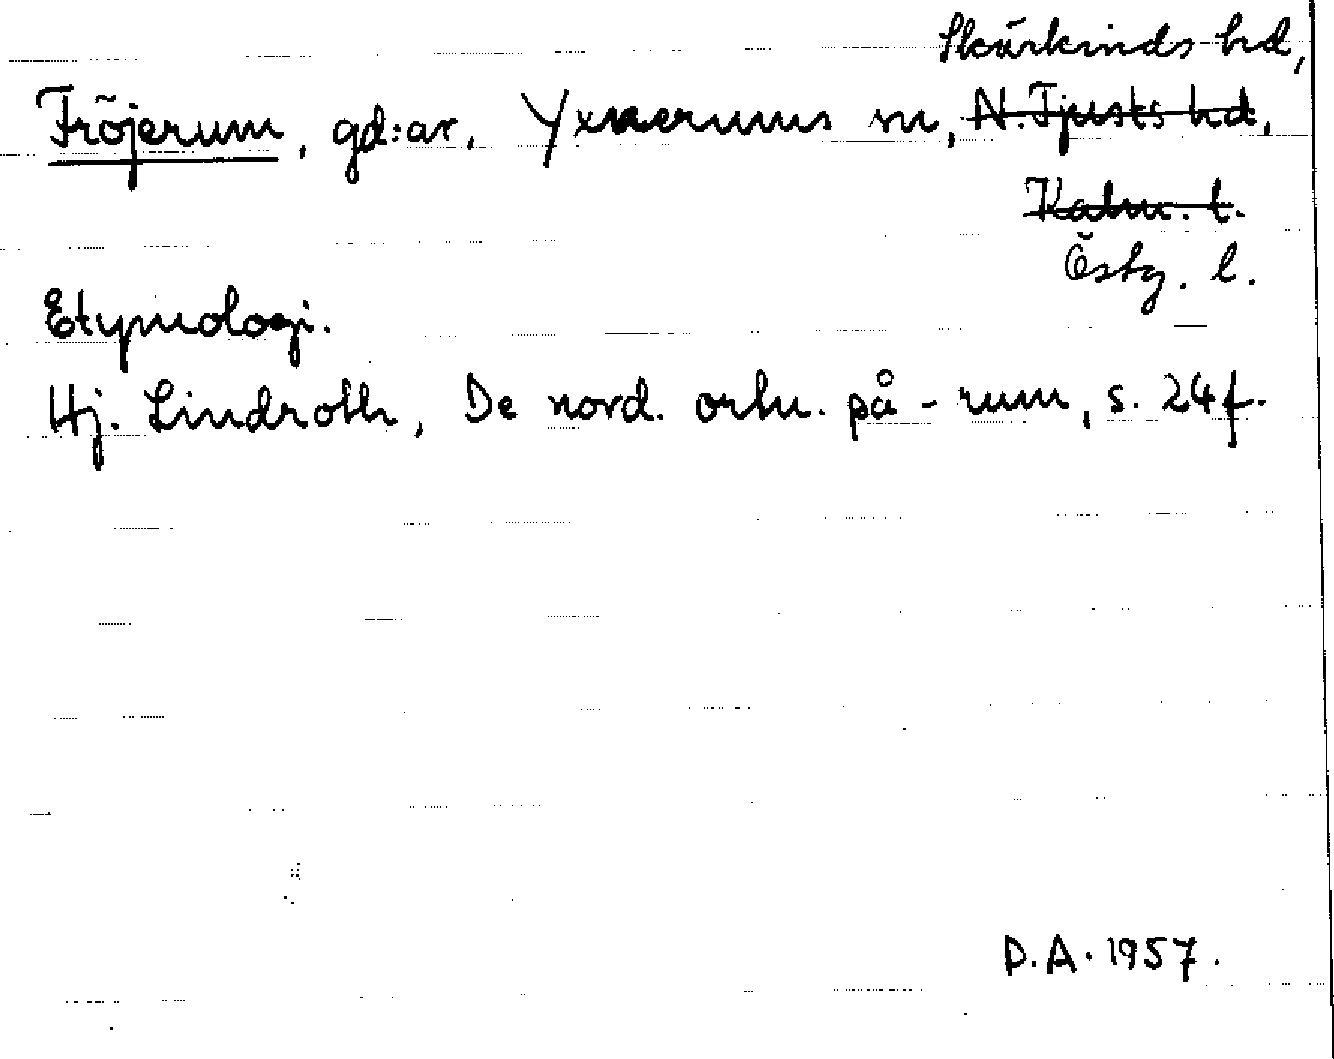 Skärkinds hd,
Fröjerum, gd:ar, Yxnerums sn, N. Tjusts hd,
Kalm. l.
Östg. l.
Etymologi.
Hj. Lindroth, De nord. ortn. på -rum, s. 24 f.
D.A. 1957.